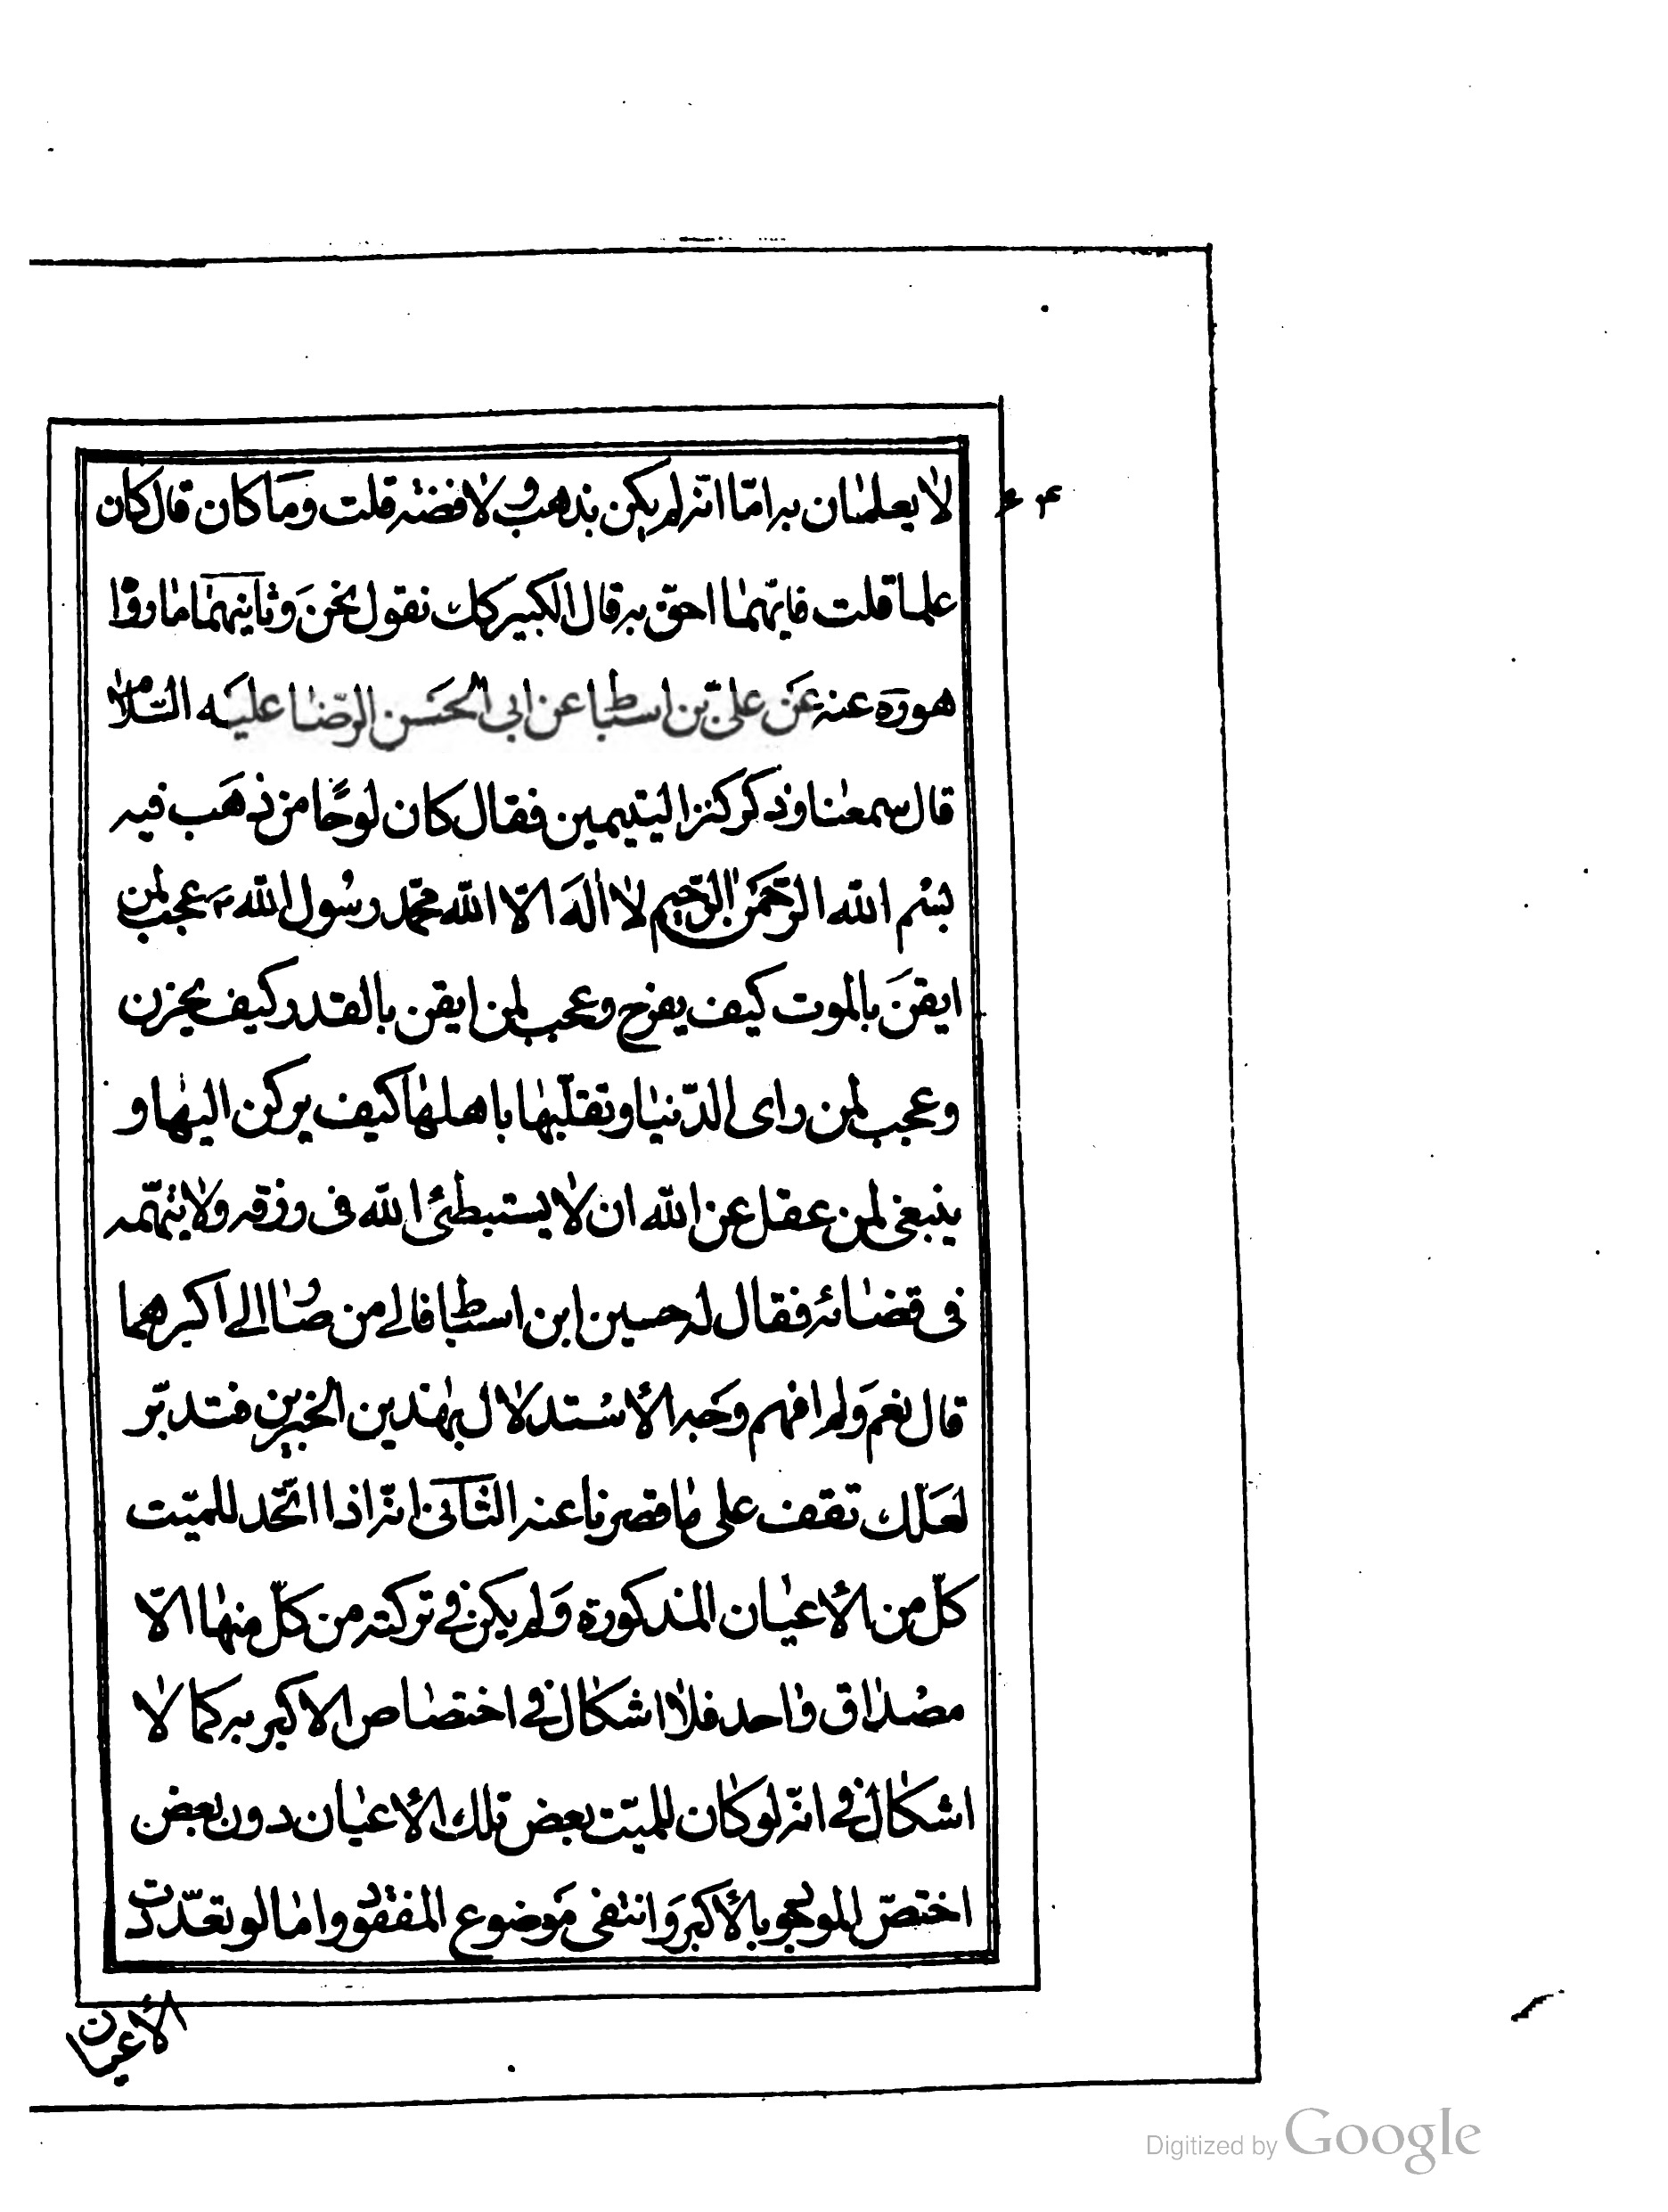 لا يعلمان به اما انه لم يكن بذهب ولا فضة قلت وما كان قال كان
علما قلت فايهما احق به قال الكبير كك نقول نحن وثانيهما ما رواه
هو ره عنه عن علي بن اسباط عن ابي الحسن الرضا عليه السلام
قال سمعنا وذكر كنز اليتيمين فقال كان لوحا من ذهب فيه
بسم الله الرحمن الرحيم لا اله الا الله محمد رسول الله عجب لمن
ايقن بالموت كيف يفرح وعجب لمن ايقن بالقدر كيف يحزن
وعجب لمن راى الدنيا وتقلبها باهلها كيف يركن اليها و
ينبغي لمن عقل عن الله ان لا يستبطئ الله في رزقه ولا يتهمه
في قضائه فقال له حسين ابن اسباط فالى من صار الى اكبرهما
قال نعم ولم افهم وجه الأستدلال بهذين الخبرين فتدبر
لعلك تقف على ما قصرنا عنه الثاني انه اذا اتحد للميت
كل من الأعيان المذكورة ولم يكن في تركته من كل منها الا
مصداق واحد فلا اشكال في اختصاص الاكبر به كما لا
اشكال في انه لو كان للميت بعض تلك الأعيان دون بعض
اختص الموجود بالأكبر وانتفى موضوع المفقود واما لو تعددت
الأعيان
Digitized by Google